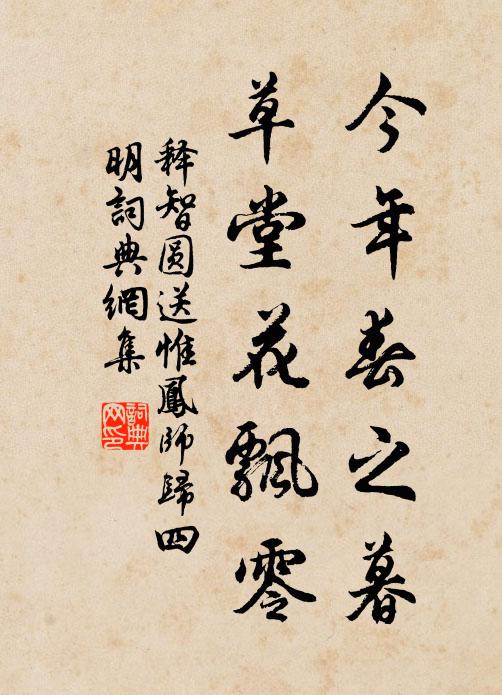 今年春之暮
草堂花飄零
释智圆送惟鳳师歸四
明詞典網集
詞典网印